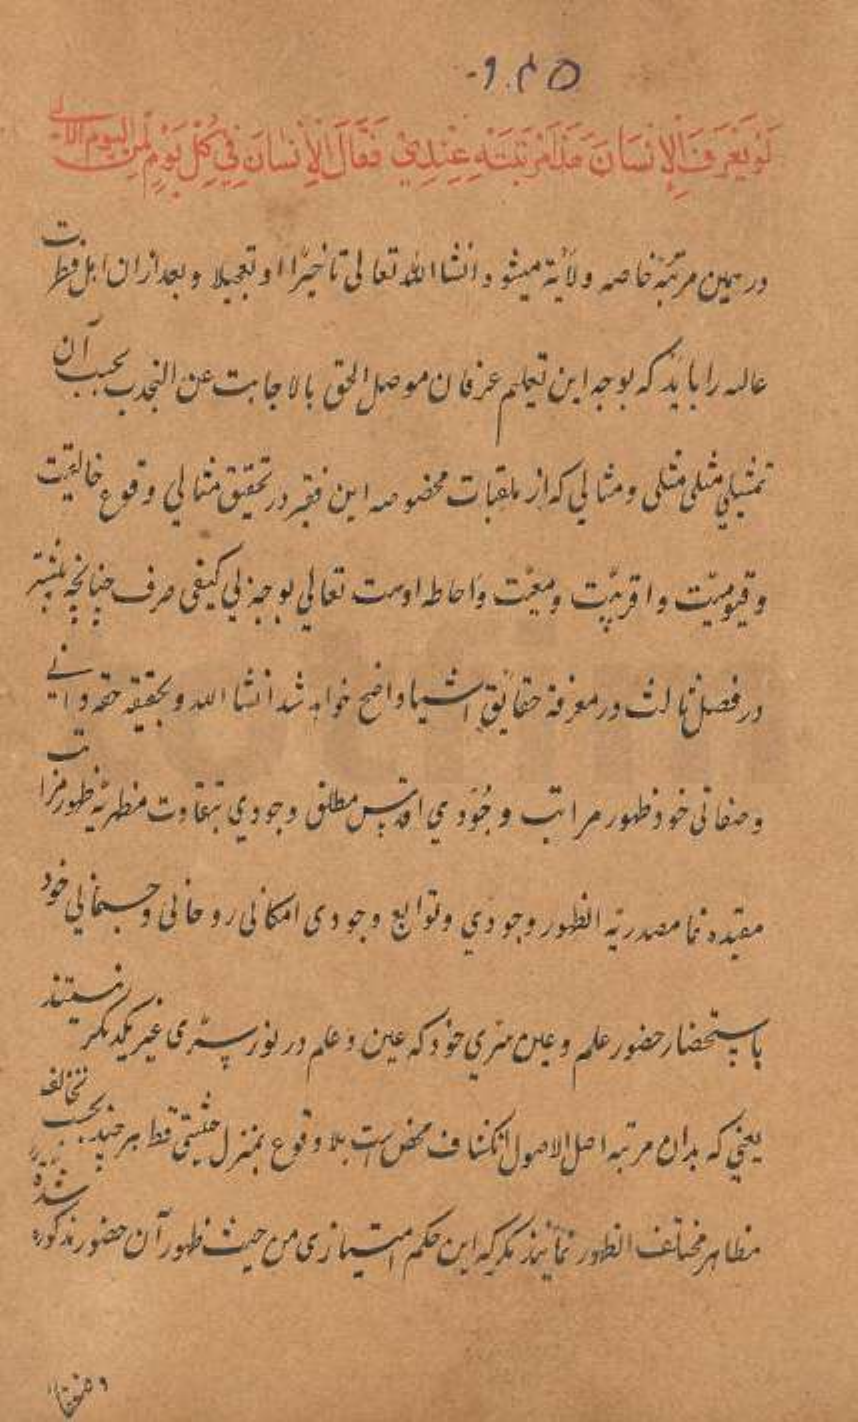 لَوْ يَعْرِفُ الْإِنْسَانَ مَنْزِلَتَهُ عِنْدِيْ فَقَالَ الْأِنْسَانَ فِيْ كُلِّ يَوْمٍ لِمَنِ الْيَوْم
در همین مرتبهٔ خاصه ولاَیة میشود انشا الله تعالی تاخیرًا او تعجیلا و بعد ازان اهل فطرت
عالیه را باید که بوجه این تعلیم عرفان موصل الحق بالاجابت عن بحسب آن
تمثیلی مثلی مثلی و مثالی که از مخصوصه این فقیر در تحقیق مثالی وقوع خالقیّت
و قیومیّت و اقربیّت و معیّت و احاطه اوست تعالی بوجه بی کیفی صرف چنانچه بیشتر
در فصل ثالث در معرفة حقایق اشیا واضح خواهد شد انشا الله و بحقیقه حقه و
و صفاتی خود ظهور مراتب وجُوْدي اقدس مطلق وجودي بتفاوت مظهریّة ظهور مرا تب
مقیّده نما مصدریّه الظهور وجودي و توابع وجودی امکانی روحانی و جسمانی خود
باستحضار حضور علم و عین سّری خود که عین و علم در نور سرّی غیر یکدیگر نیستند
یعنی که بدان مرتبه اصل الاصول انکشاف محض است بلا وقوع بمنزل حیثیتی قط هر چند بحسب تخالف
مظاهر مختلف الظهور نمایند مگر که این حکم امتیازی من حیث ظهور آن حضور مذکوره شده